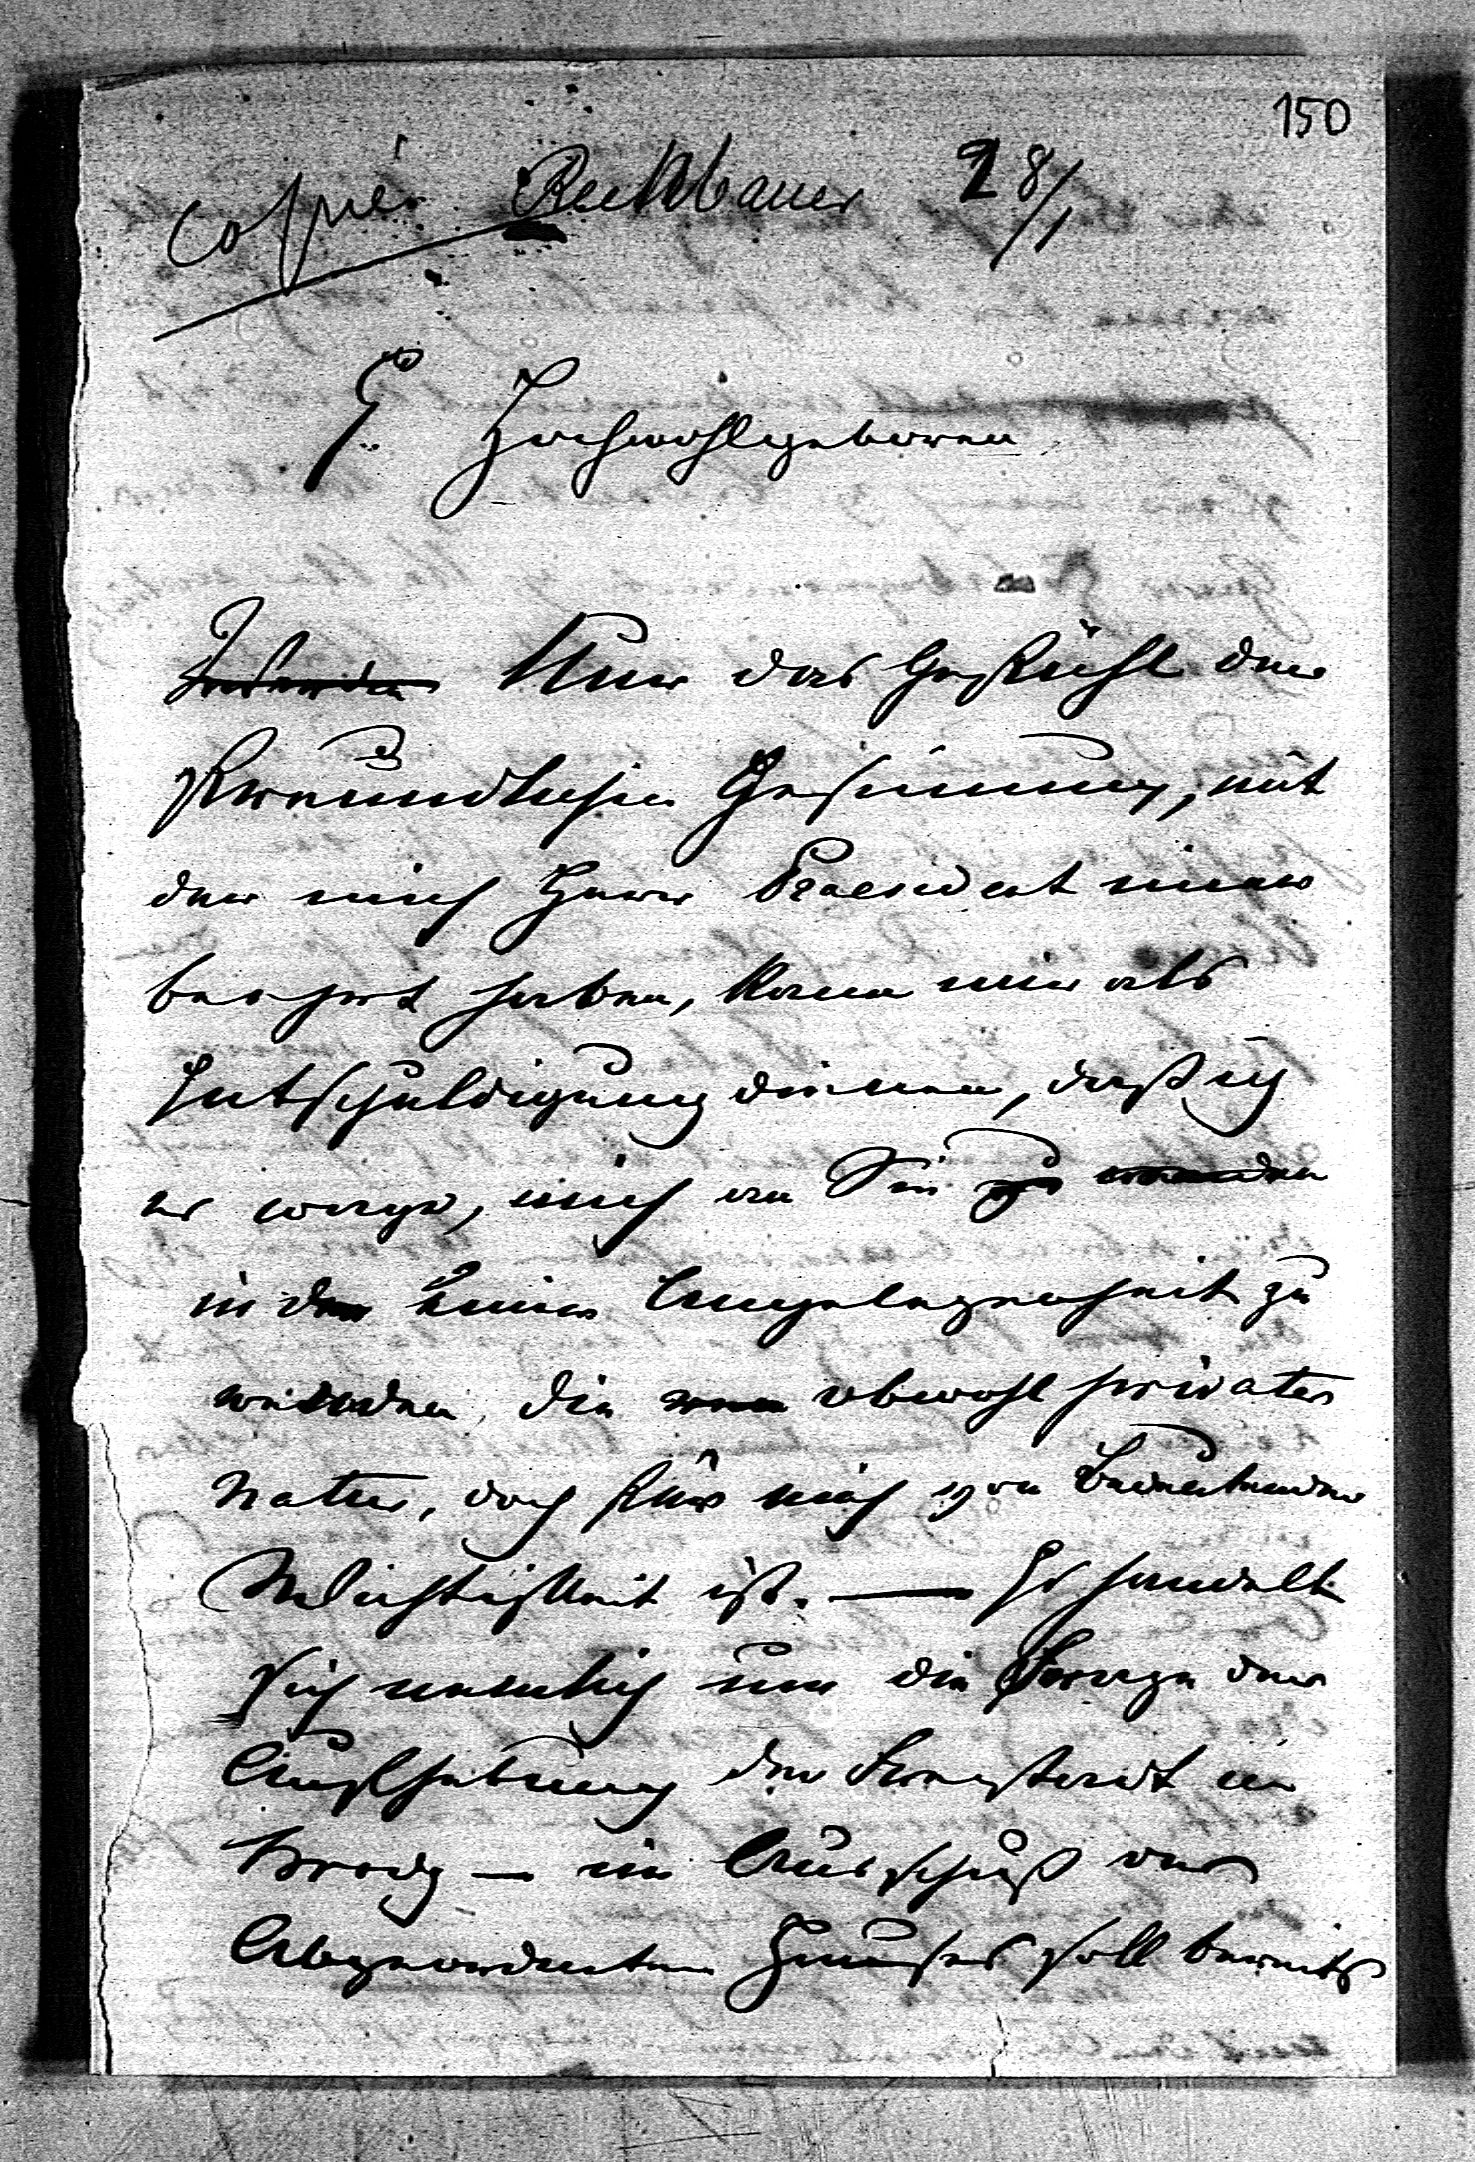 150
copié Rechbauer 28/1
E Hochwohlgeboren
Nur das Gefühl der
freundlichen Gesinnung, mit
der mich Herr Praesident immer
beehrt haben, kann mir als
Entschuldigung dienen, daß ich
es wage, mich an Sie zu wenden
in der einer Angelegenheit zu
wenden, die obwohl privater
Natur, doch für mich von bedeutender
Wichtigkeit ist. — Es handelt
sich nemlich um die Frage der
Aufhebung der Freystadt in
Brody — im Ausschuß des
Abgeordneten Hauses soll bereits